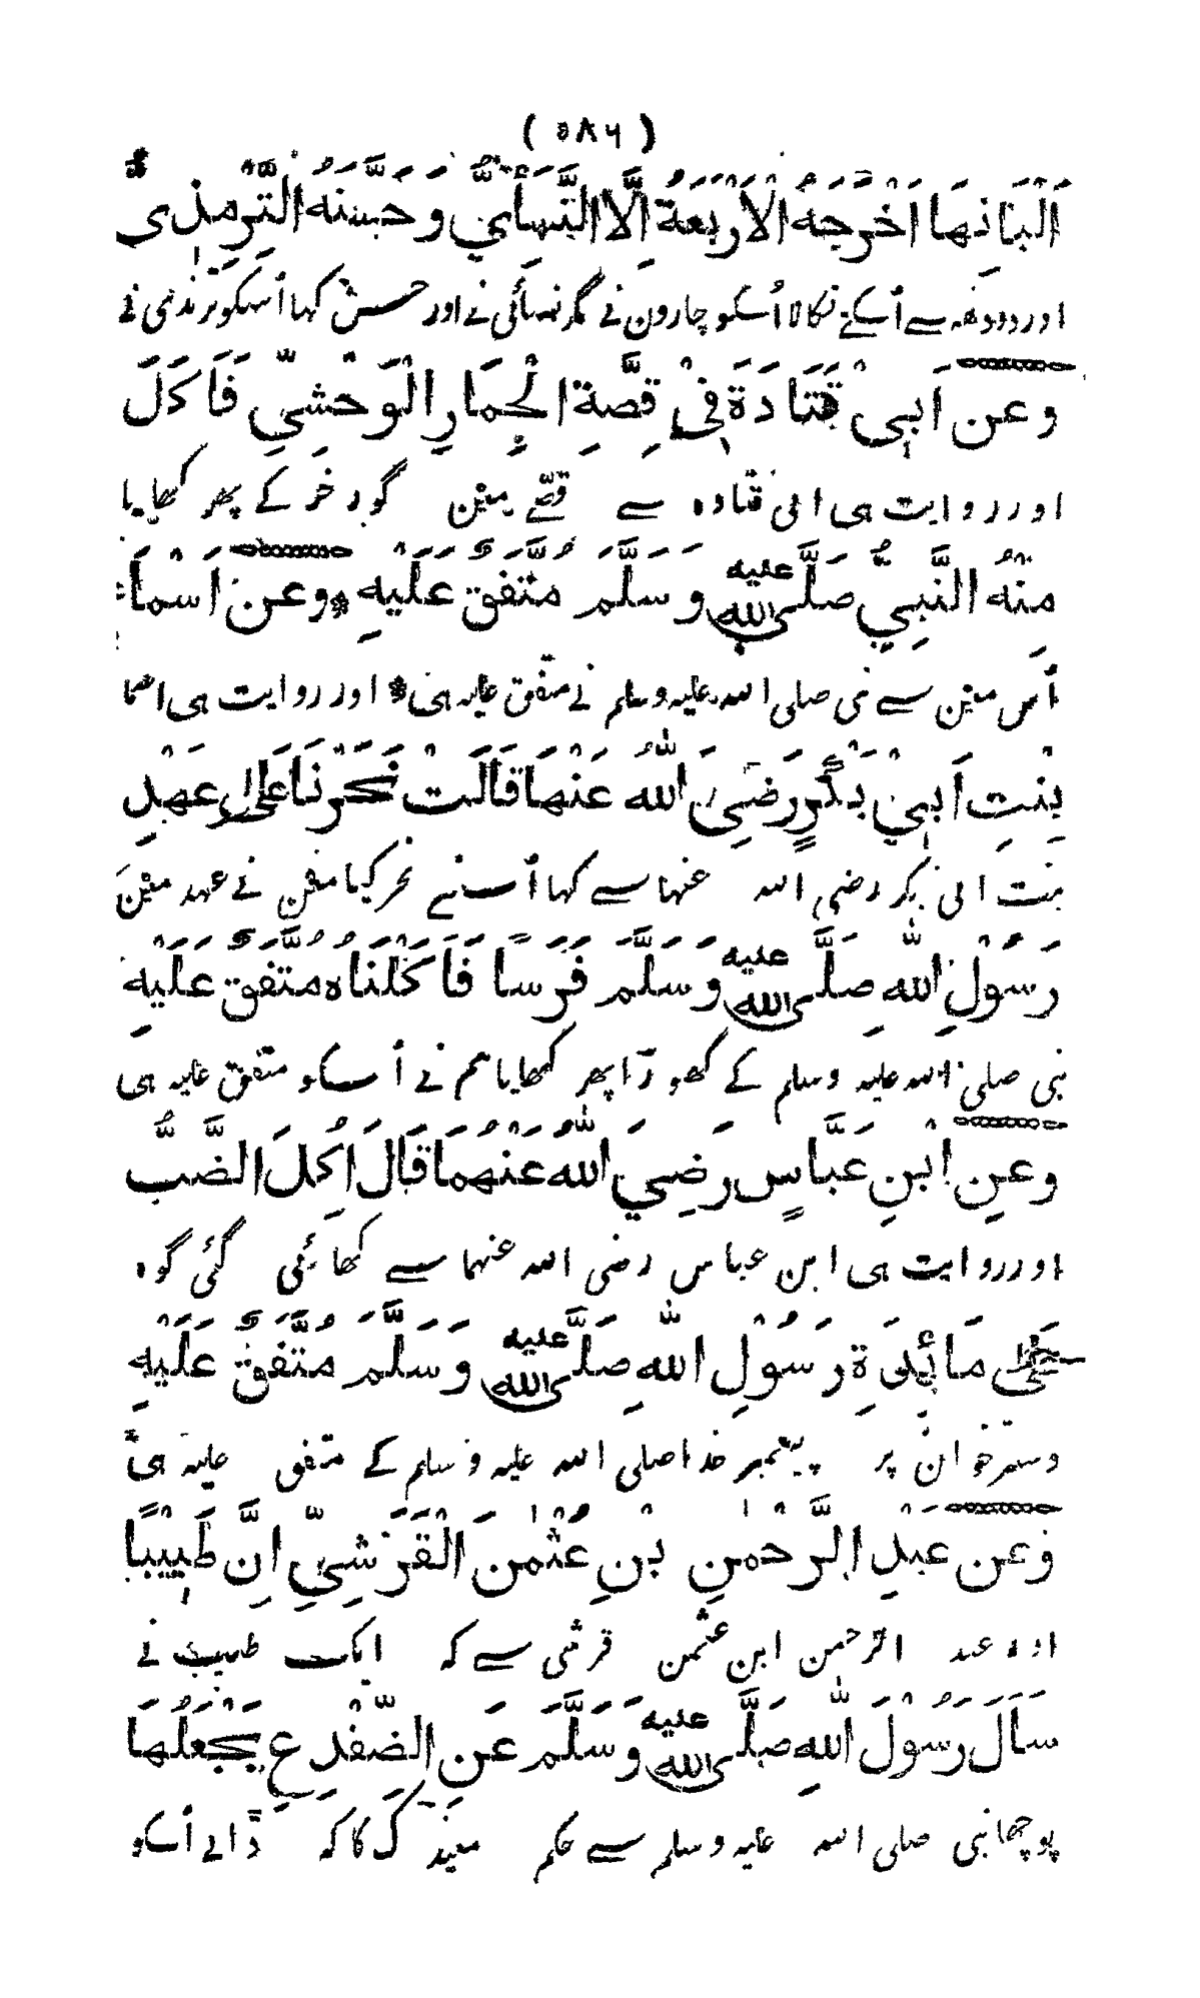 ( ۵۸۶ )
اَلْبَانِهَا اَخْرَجَهُ الْاَرْبَعَةُ اِلَّا النَّسَائِيُّ وَحَسَّنَهُ التِّرْمِذِيُّ
اور دودھہ سے اُسکے نکالا اُسکو چارون نے مگر نسائی نے اور حسن کہا اُسکو ترمذی نے
وعن اَبِي قَتَادَةَ فِيْ قِصَّةِ الْحِمَارِ الْوَحْشِيِّ فَاَكَلَ
اور روایت ہی ابی قتادہ سے قصّے مین گور خر کے پھر کھایا
مِنْهُ النَّبِيُّ صَلَّى اللّٰه عليه وَسَلَّمَ مُتَّفَقٌ عَلَيْهِ * وعن اَسْمَاءَ
اُس مین سے نبی صلی اللہ علیہ وسلم نے متفق علیہ ہی * اور روایت ہی اسما
بِنْتِ اَبِيْ بَكْرٍ رَضِيَ اللّٰهُ عَنْهَا قَالَتْ نَحَرْنَا عَلٰى عَهْدِ
بنت ابی بکر رضی اللہ عنہا سے کہا اُسنے نحر کیا ہمنے عہد مین
رَسُوْلِ اللّٰهِ صَلَّى اللّٰه عليه وَسَلَّمَ فَرَسًا فَاَكَلْنَاهُ مُتَّفَقٌ عَلَيْهِ
نبی صلی اللہ علیہ وسلم کے گھوڑا پھر کھایا ہم نے اُسکو متفق علیہ ہی
وعنِ ابْنِ عَبَّاسٍ رَضِيَ اللّٰهُ عَنْهُمَا قَالَ اُكِلَ الضَّبُّ
اور روایت ہی ابن عباس رضی اللہ عنہما سے کھائی گئی گوہ
عَلٰى مَائِدَةِ رَسُوْلِ اللّٰهِ صَلَّى اللّٰه عليه وَسَلَّمَ مُتَّفَقٌ عَلَيْهِ
دسترخوان پر پیغمبر خدا صلی اللہ علیہ وسلم کے متفق علیہ ہی
وَعن عَبْدِ الرَّحْمٰنِ بْنِ عُثْمٰنَ الْقَرَشِيِّ اِنَّ طَبِيْبًا
اور عبد الرحمن ابن عثمن قرشی سے کہ ایک طبیب نے
سَاَلَ رَسُوْلَ اللّٰهِ صَلَّى اللّٰه عليه وَسَلَّمَ عَنِ الضِّفْدِعِ يَجْعَلُهَا
پوچھا نبی صلی اللہ علیہ وسلم سے حکم مینڈک کا کہ ڈالے اُسکو